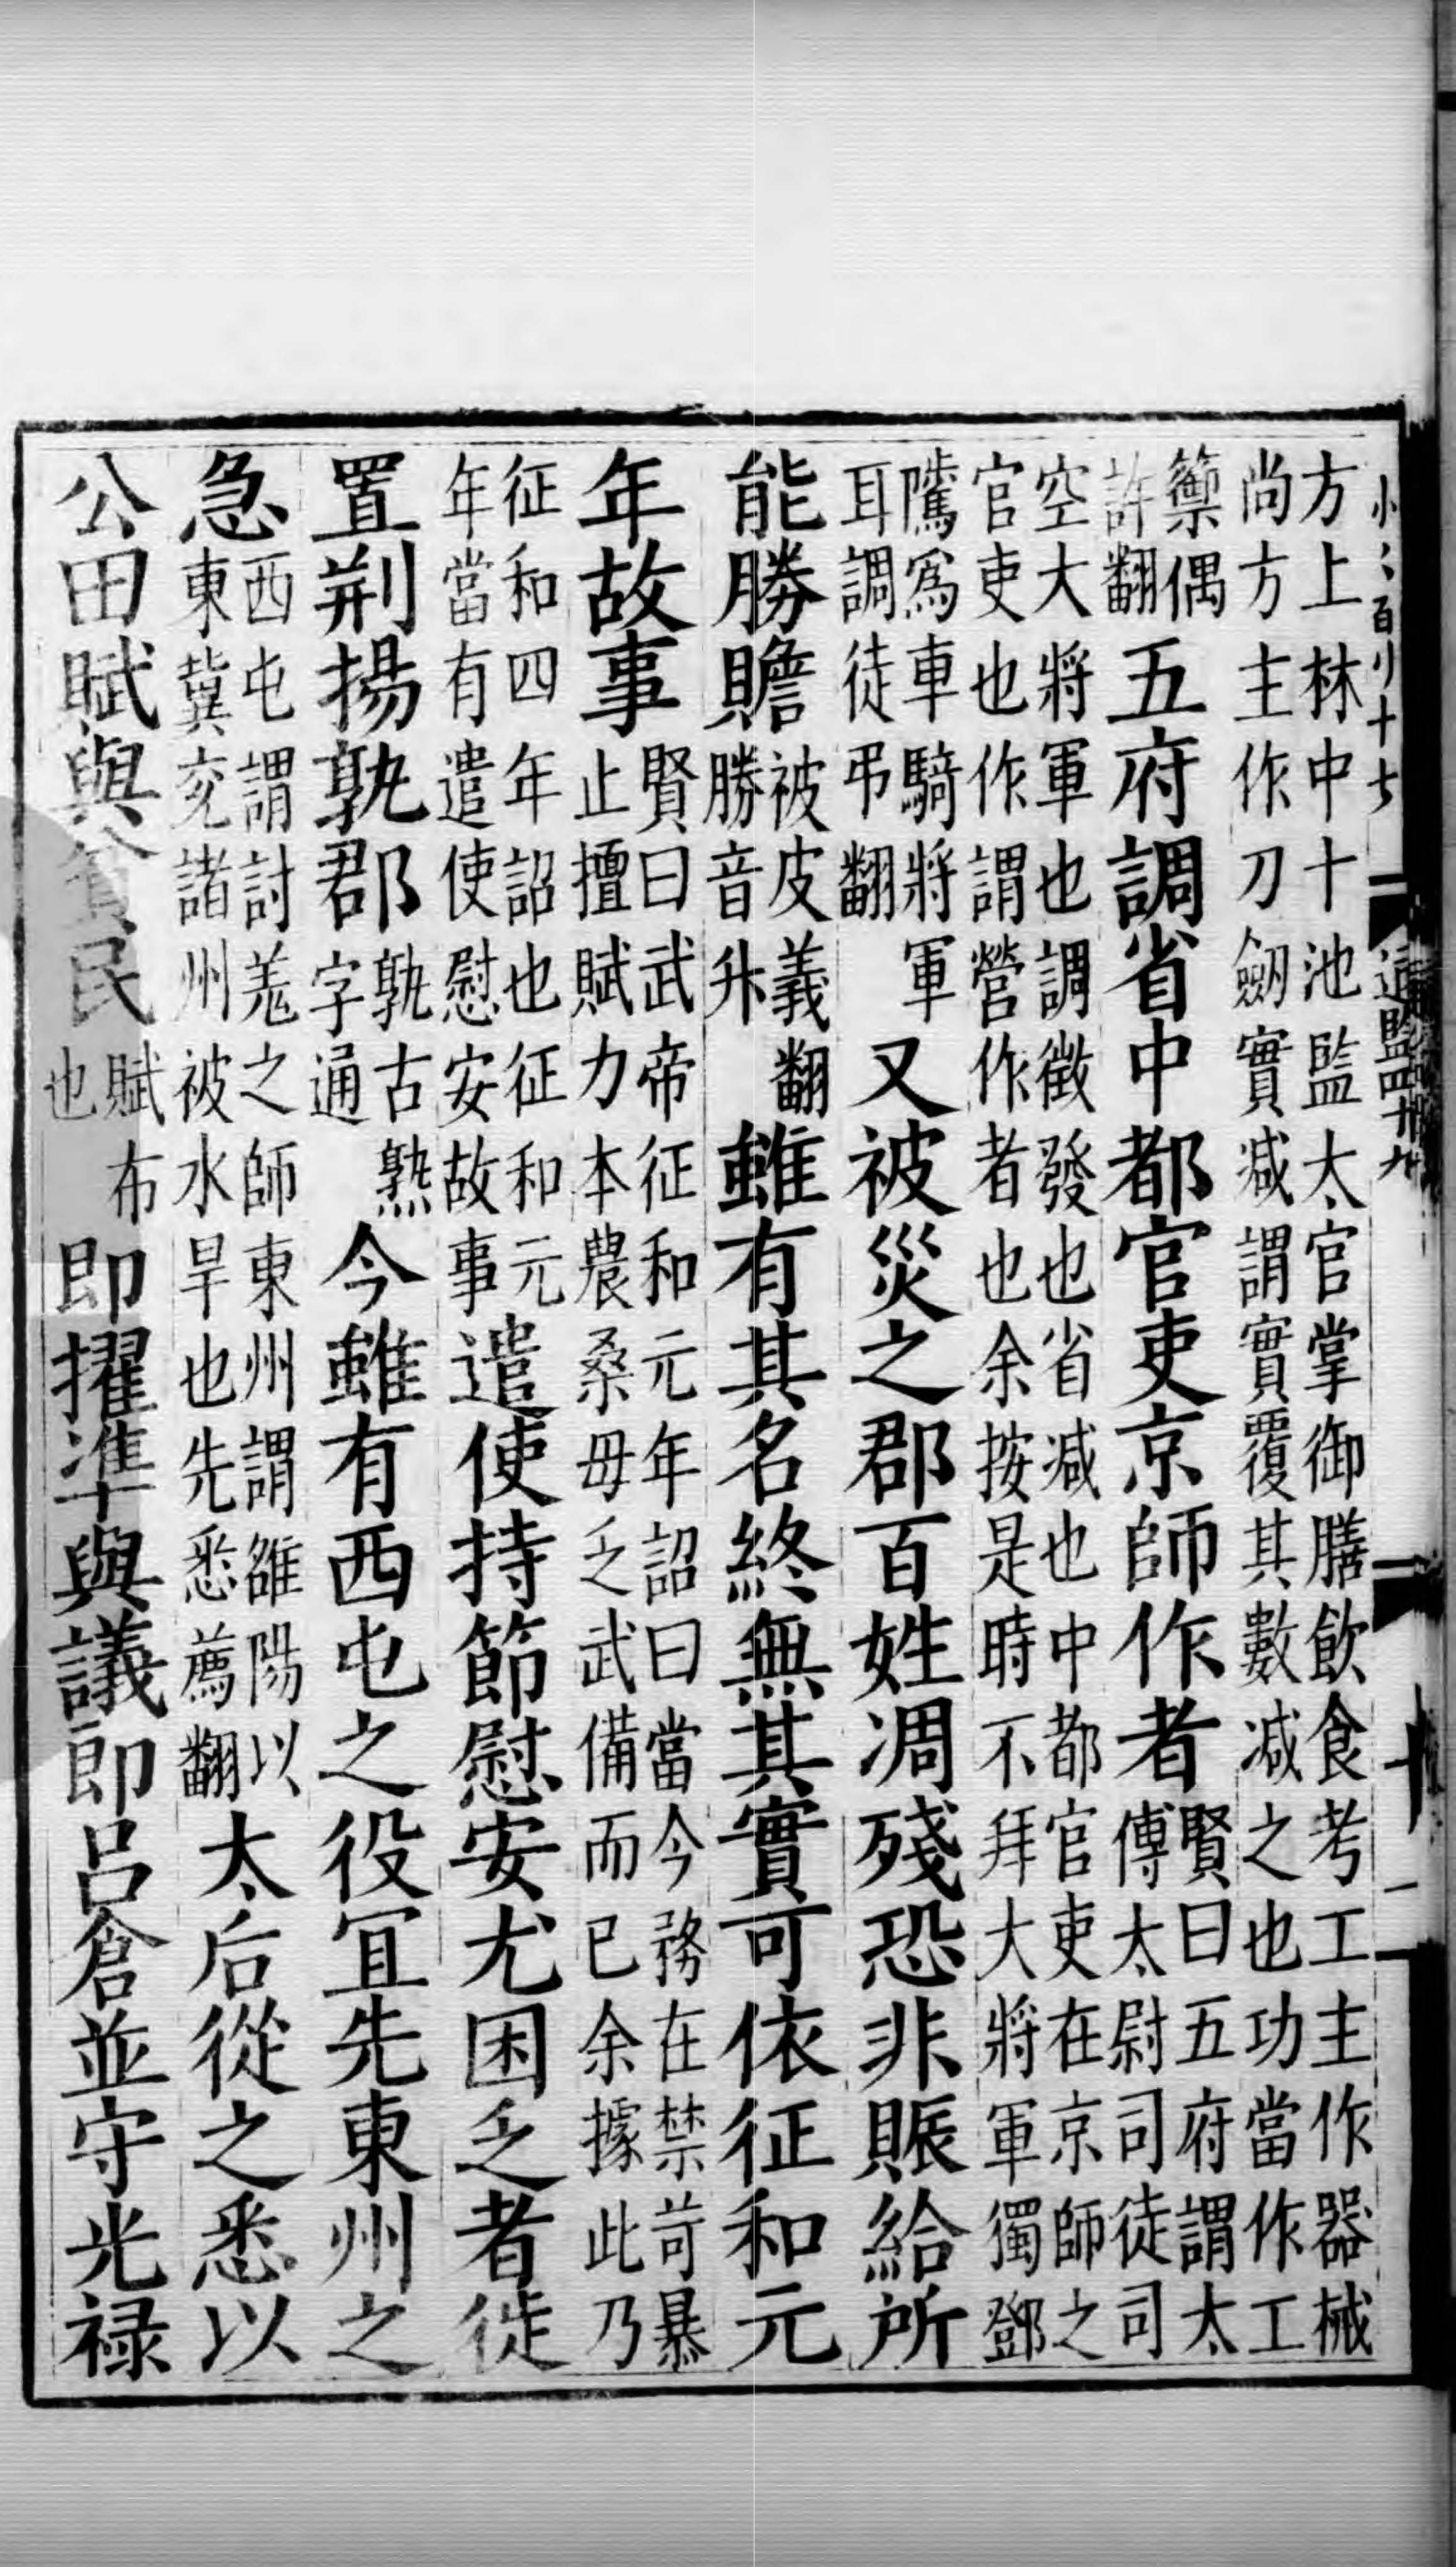 方上林中十池監太官掌御膳飲食考工主作器械
尚方主作刀劒實减謂實覆其數减之也功當作工
籞偶
許翻
五府調省中都官吏京師作者
賢曰五府謂太
傅太尉司徒司
空大將軍也調徵發也省减也中都官吏在京師之
官吏也作謂營作者也余按是時不拜大將軍獨鄧
騭爲車騎將軍
耳調徒弔翻
又被災之郡百姓凋殘恐非賑給所
能勝贍
被皮義翻
勝音升
雖有其名終無其實可依征和元
年故事
賢曰武帝征和元年詔曰當今務在禁苛暴
止擅賦力本農桑毋乏武備而已余據此乃
征和四年年詔也征和元
年當有遣使慰安故事
遣使持節慰安尤困乏者徙
置荆揚孰郡
孰古熟
字通
今雖有西屯之役宜先東州之
急
西屯謂討羌之師東州謂雒陽以
東冀兖諸州被水旱也先悉薦翻
太后從之悉以
公田賦與貧民
賦布
也
即擢準與議郎呂倉並守光禄